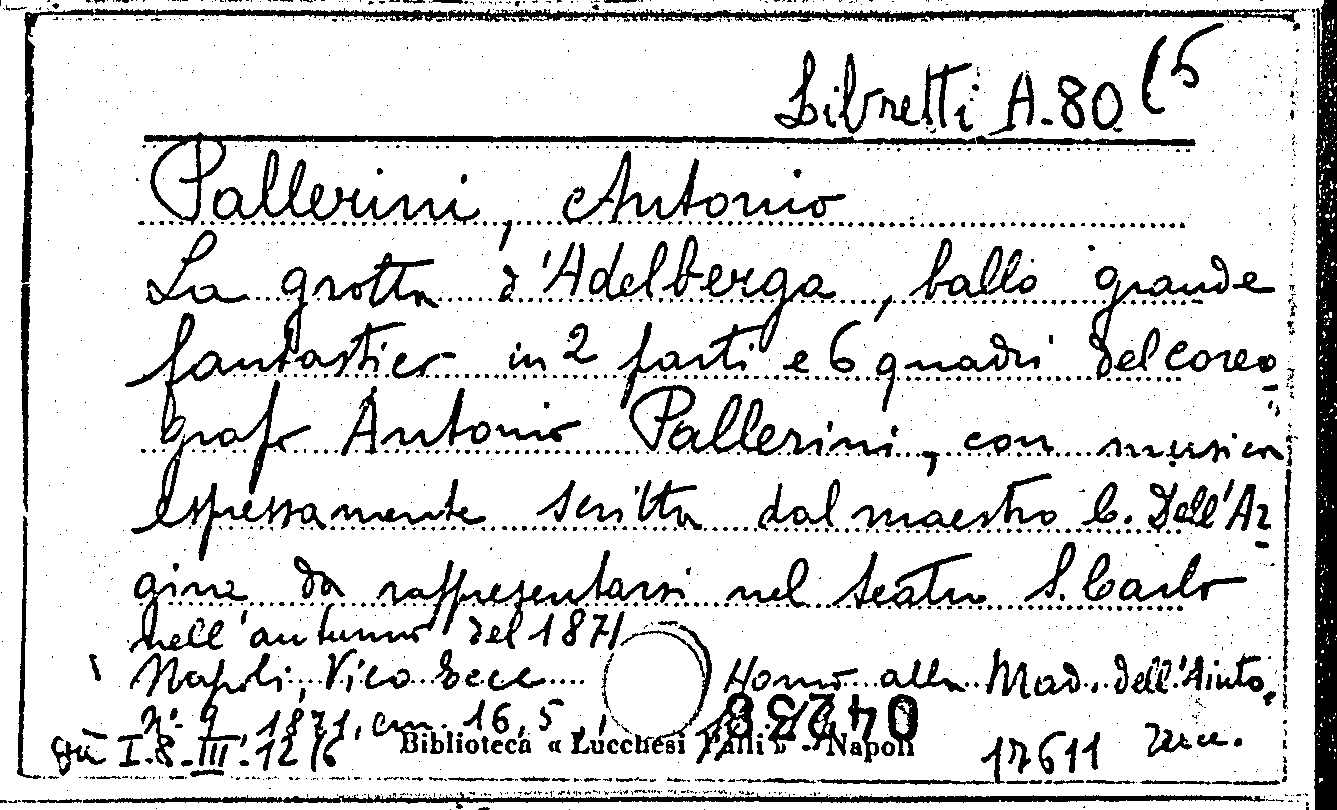 Libretti A.80 (5
Pallerini, Antonio
La grotta d'Adelberga, ballo grande
fantastico in 2 parti e 6 quadri del coreo-
grafo Antonio Pallerini, con musica
espressamente scritta dal maestro C. Dell'Ar-
gine da rappresentarsi nel teatro S. Carlo
nell'autunno del 1871
Napoli, Vico alla Mad. dell'Aiuto,
n.º 9, 1871, cm. 16,5,
già I.8.III.12(6
Biblioteca « Lucchesi Palli » - Napoli
04233
17611